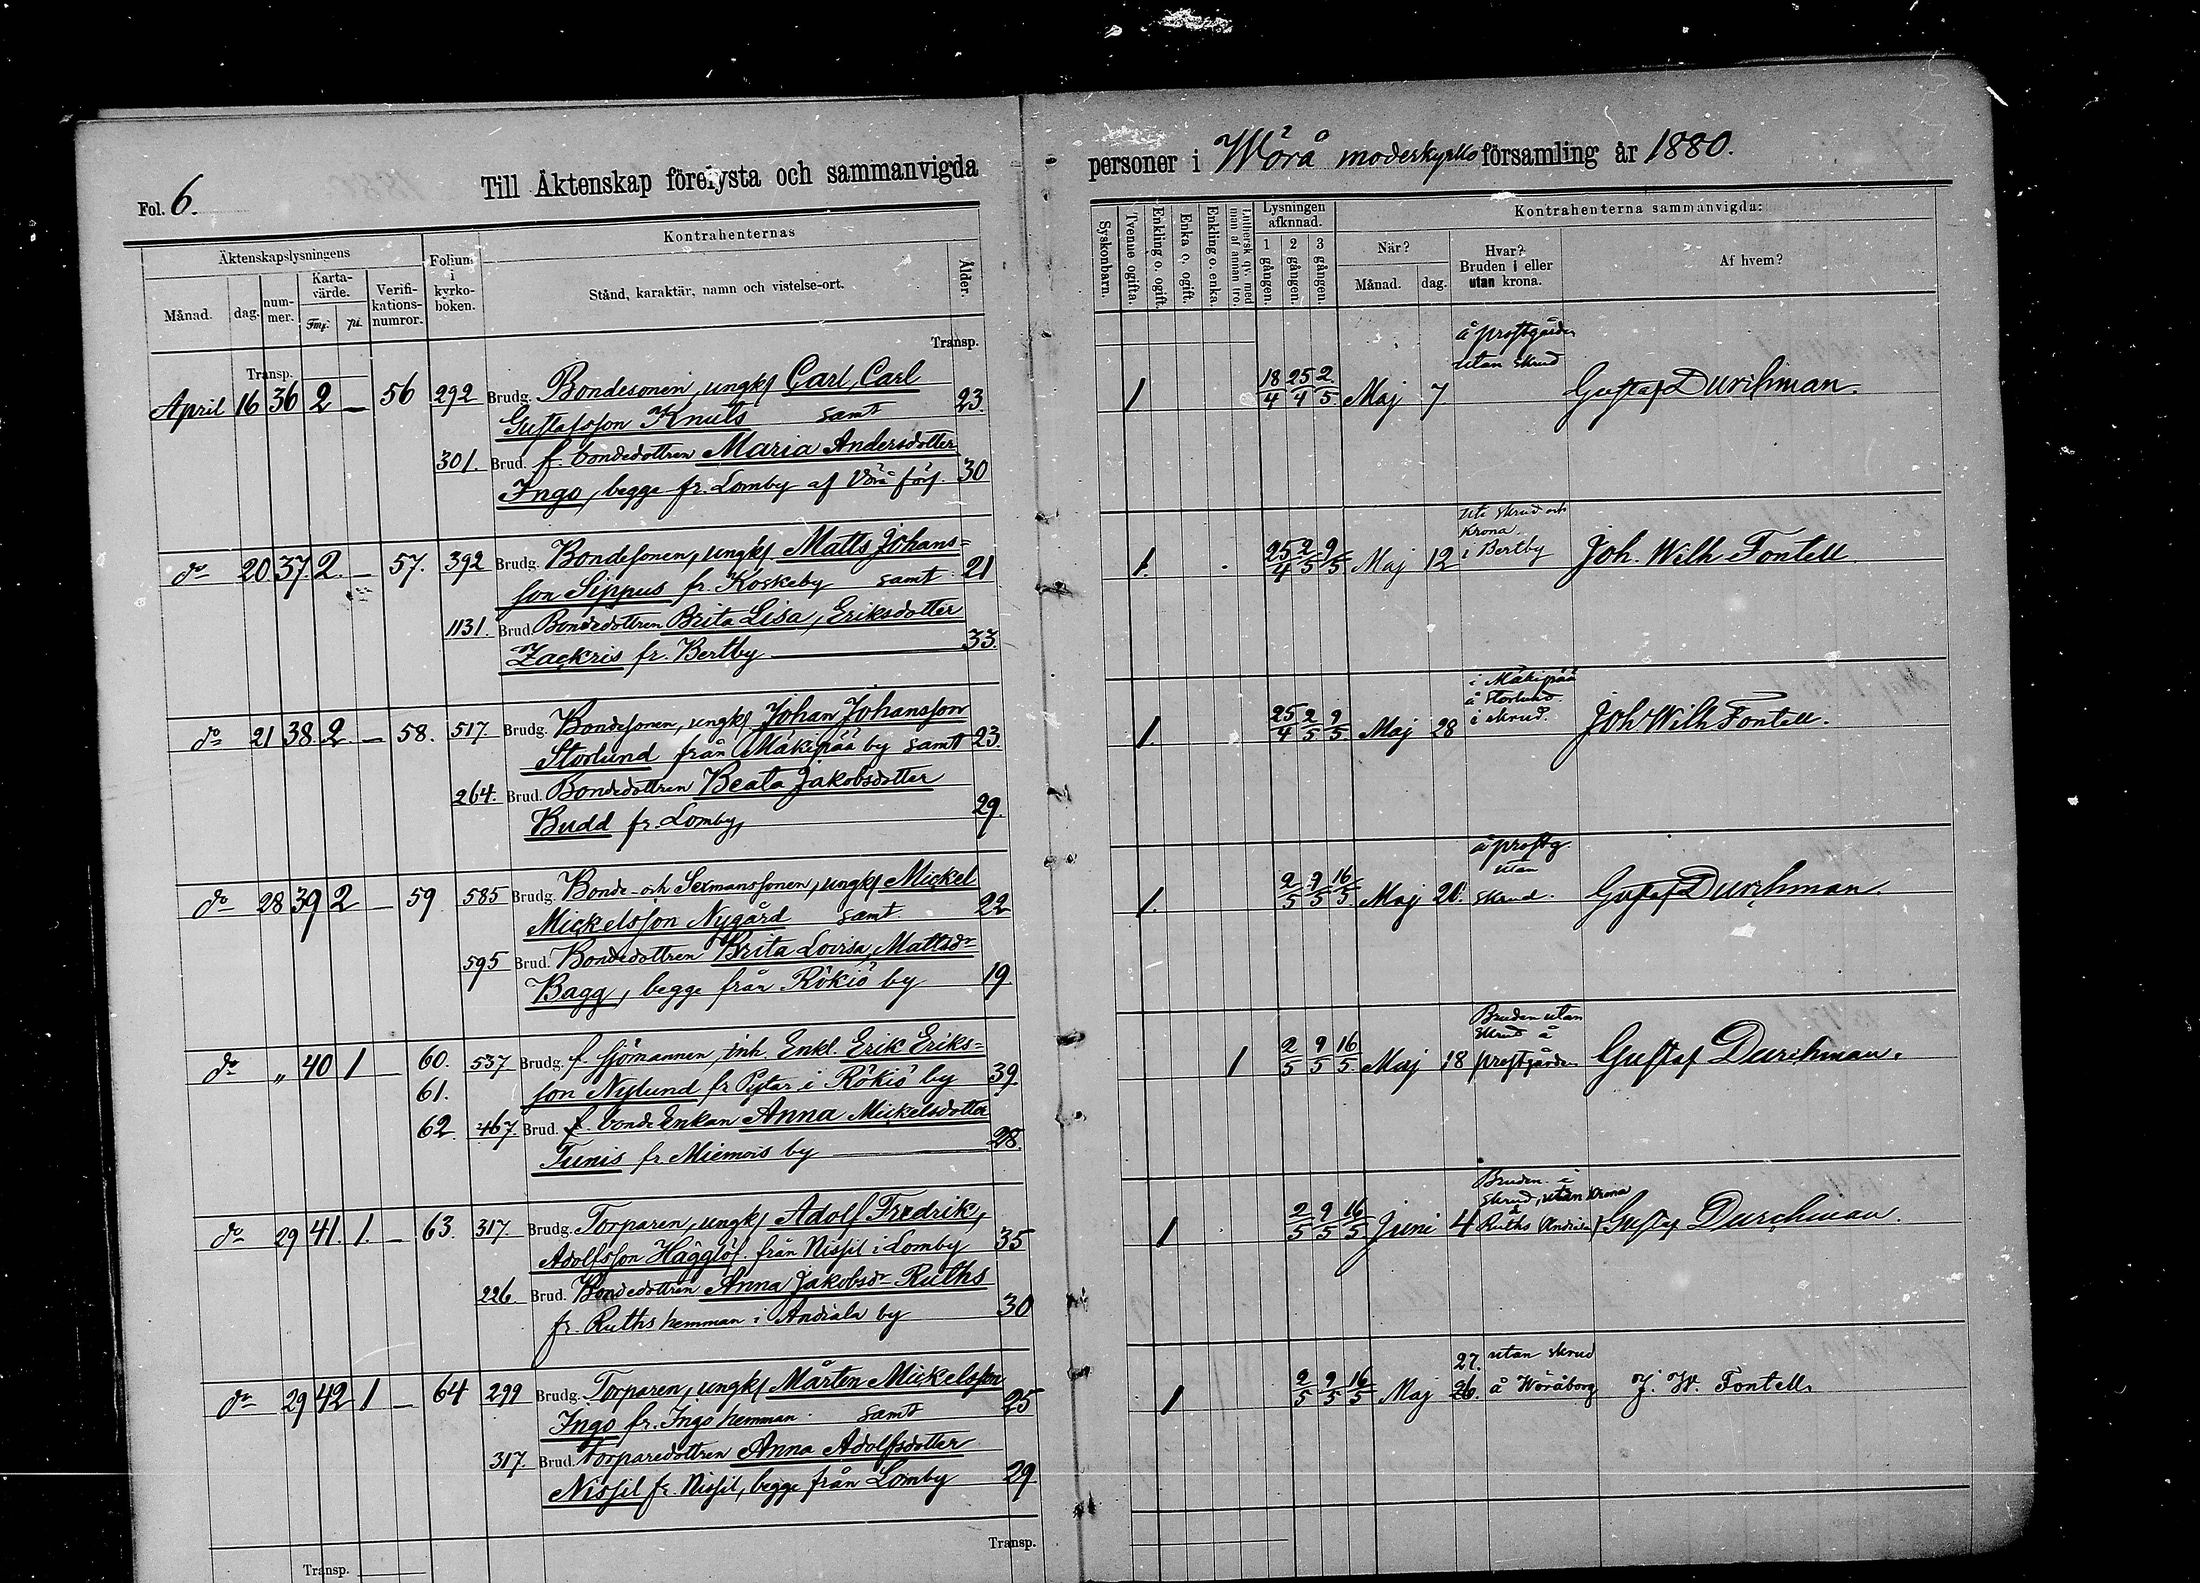 Fol. 6.
Till Äktenskap förelysta och sammanvigda
personer i Wörå moderkyrko församling år 1880.
Äktenskapslysningens
Månad.
dag.
num-
mer.
Karta-
värde.
Fmf.
pi.
Verifi-
kations-
numror.
Folium
i
kyrko-
boken.
Kontrahenternas
Stånd, karaktär, namn och vistelse-ort.
Ålder.
Syskonbarn.
Tvenne ogifta.
Enkling o. ogift.
Enka o. ogift.
Enkling o. enka.
Luthersk qv. med
man af annan tro.
Lysningen
afkunnad.
1 gången.
2 gången.
3 gången.
Kontrahenterna sammanvigda:
När?
Månad.
dag.
Hvar?
Bruden i eller
utan krona.
Af hvem?
Transp.
Transp.
April 16 36 2 — 56 292 Brudg. Bondesonen, ungk. Carl, Carl
Gustafsson Knuts samt 23.
301. Brud. f. bondedottren Maria Andersdotter
Ingo, begge fr. Lomby af Vörå förs. 30
1 18/4 25/4 2/5. Maj 7 å prostgården
utan skrud
Gustaf Durchman.
do 20 37. 2. — 57. 392 Brudg. Bondesonen, ungk. Matts Johans=
son Sippus fr. Koskeby samt 21
1131. Brud. Bondedottren Brita Lisa, Eriksdotter
Zackris fr. Bertby 33.
1. 25/4 2/5 9/5 Maj 12 uti skrud och
krona
i Bertby
Joh. Wilh Fontell.
do 21 38. 2. — 58. 517. Brudg. Bondesonen, ungk. Johan Johansson
Storlund från Mäkipää by samt 23.
264. Brud. Bondedottren Beata Jakobsdotter
Budd fr. Lomby, 29.
1. 25/4 2/5 9/5. Maj 28 i Mäkipää
å Storlund
i skrud.
Joh Wilh Fontell.
do 28 39 2 — 59 585 Brudg. Bonde- och Sexmanssonen, ungk. Mickel
Mickelsson Nygård samt 22
595 Brud. Bondedottren Brita Lovisa, Mattsdr
Bagg, begge från Rökiö by 19.
1. 2/5 9/5 16/5. Maj å prostg.
utan
skrud.
Gustaf Durchman.
do „ 40 1 — 60. 537 Brudg. f. sjömannen, inh. Enkl. Erik Eriks=
61. son Nylund fr i Rökiö by 39.
62. 467. Brud. f. bonde Enkan Anna Mickelsdotter
Tunis fr. Miemois by 28.
1 2/5 9/5 16/5. Maj 18 Bruden utan
skrud å
prostgården
Gustaf Durchman.
do 29 41. 1. — 63. 317. Brudg. Torparen, ungk. Adolf Fredrik,
Adolfsson Hägglöf. från Nissil i Lomby 35
226. Brud. Bondedottren Anna Jakobsdr Ruths
fr. Ruths hemman i Andiala by 30
1 2/5 9/5 16/5 Juni 4 Bruden i
skrud, utan krona
å
Ruths Andiala
Gustaf Durchman.
do 29 42 1 — 64 299 Brudg. Torparen, ungk. Mårten Mickelsson
Ingo fr. Ingo hemman. samt 25
317. Brud. Torparedottren Anna Adolfsdotter
Nissil fr. Nissil, begge från Lomby 29
1 2/5 9/5 16/5 Maj 27.
26. utan skrud
å Wöråborg
J. W. Fontell.
Transp.
Transp.